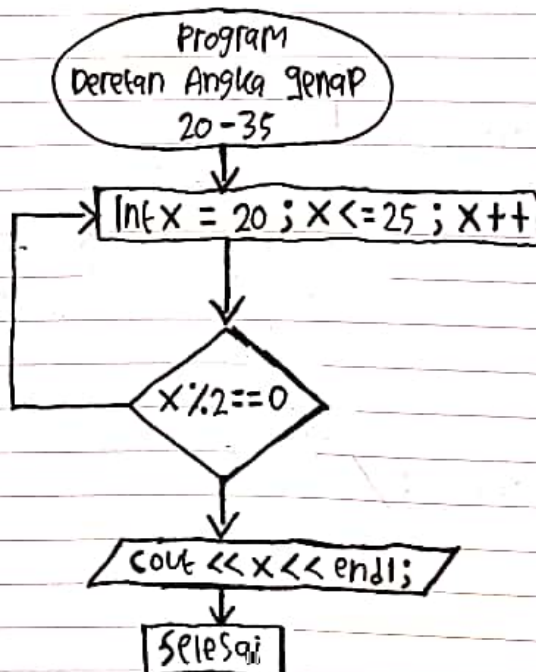 Program
Deretan Angka genap
20-35
Int x = 20 ; x <= 25 ; x++
x%2==0
cout << x << endl;
Selesai